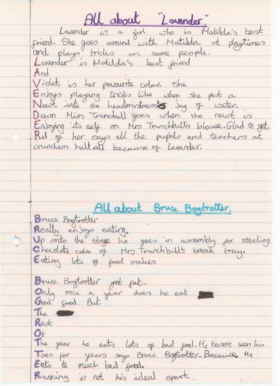 All about "Lavender"
Lavender is a girl who is Matilda's best
friend. She goes around with Matilda at playtimes
and plays tricks on some people.
Lavender is Matilda's best friend
And
Violet is her favourite colour. She
Enjoys playing tricks like when she put a
Newt into the headmistress's jug of water.
Down Miss Trunchbull goes when the newt is
Enjoying its self on Mrs Trunchbulls blouse. Glad to get
Rid of her says all the pupils and teachers at
crunchem hall all because of Lavender.
All about Bruce Bogtrotter.
Bruce Bogtrotter
Really enjoys eating.
Up onto the stage he goes in assembly for stealing
Chocolate cake of Mrs Trunchbull's break tray.
Eating lots of food makes
Bruce Bogtrotter get fat.
Only once a year does he eat
Good food. But
The
Rest
Of
The year he eats lots of bad food. He hasnt seen his
Toes for years says Bruce Bogtrotter. Because He
Eats to much bad food.
Running is not his ideal sport.